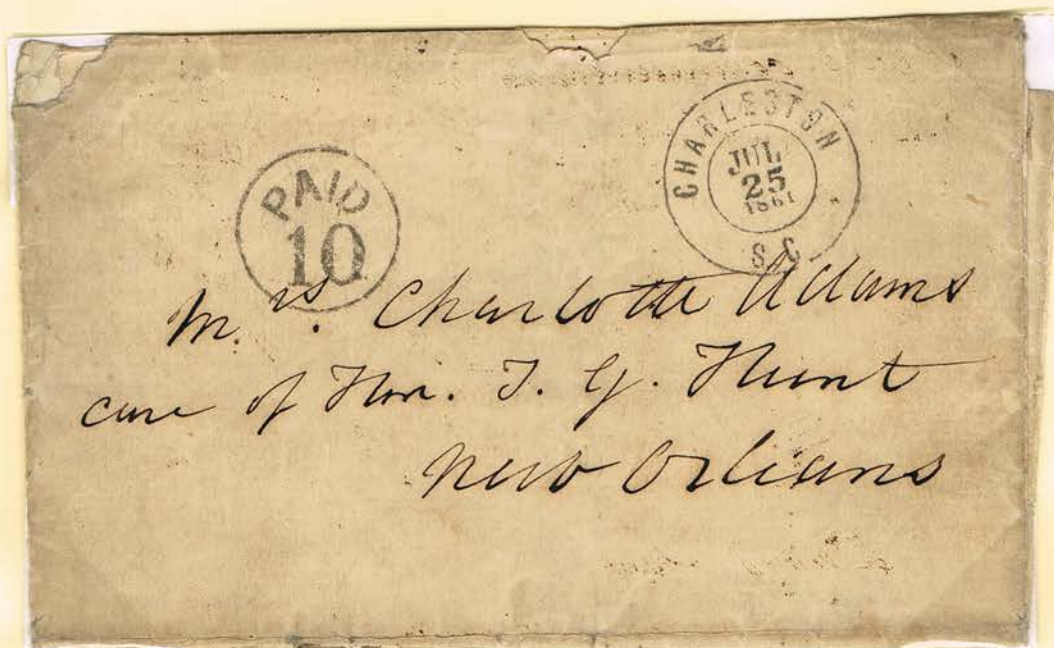 PAID
10
CHARLESTON
JUL
25
1861
S.C
Mrs. Charlotte Adams
care of Hon. T. G. Hunt
New Orleans